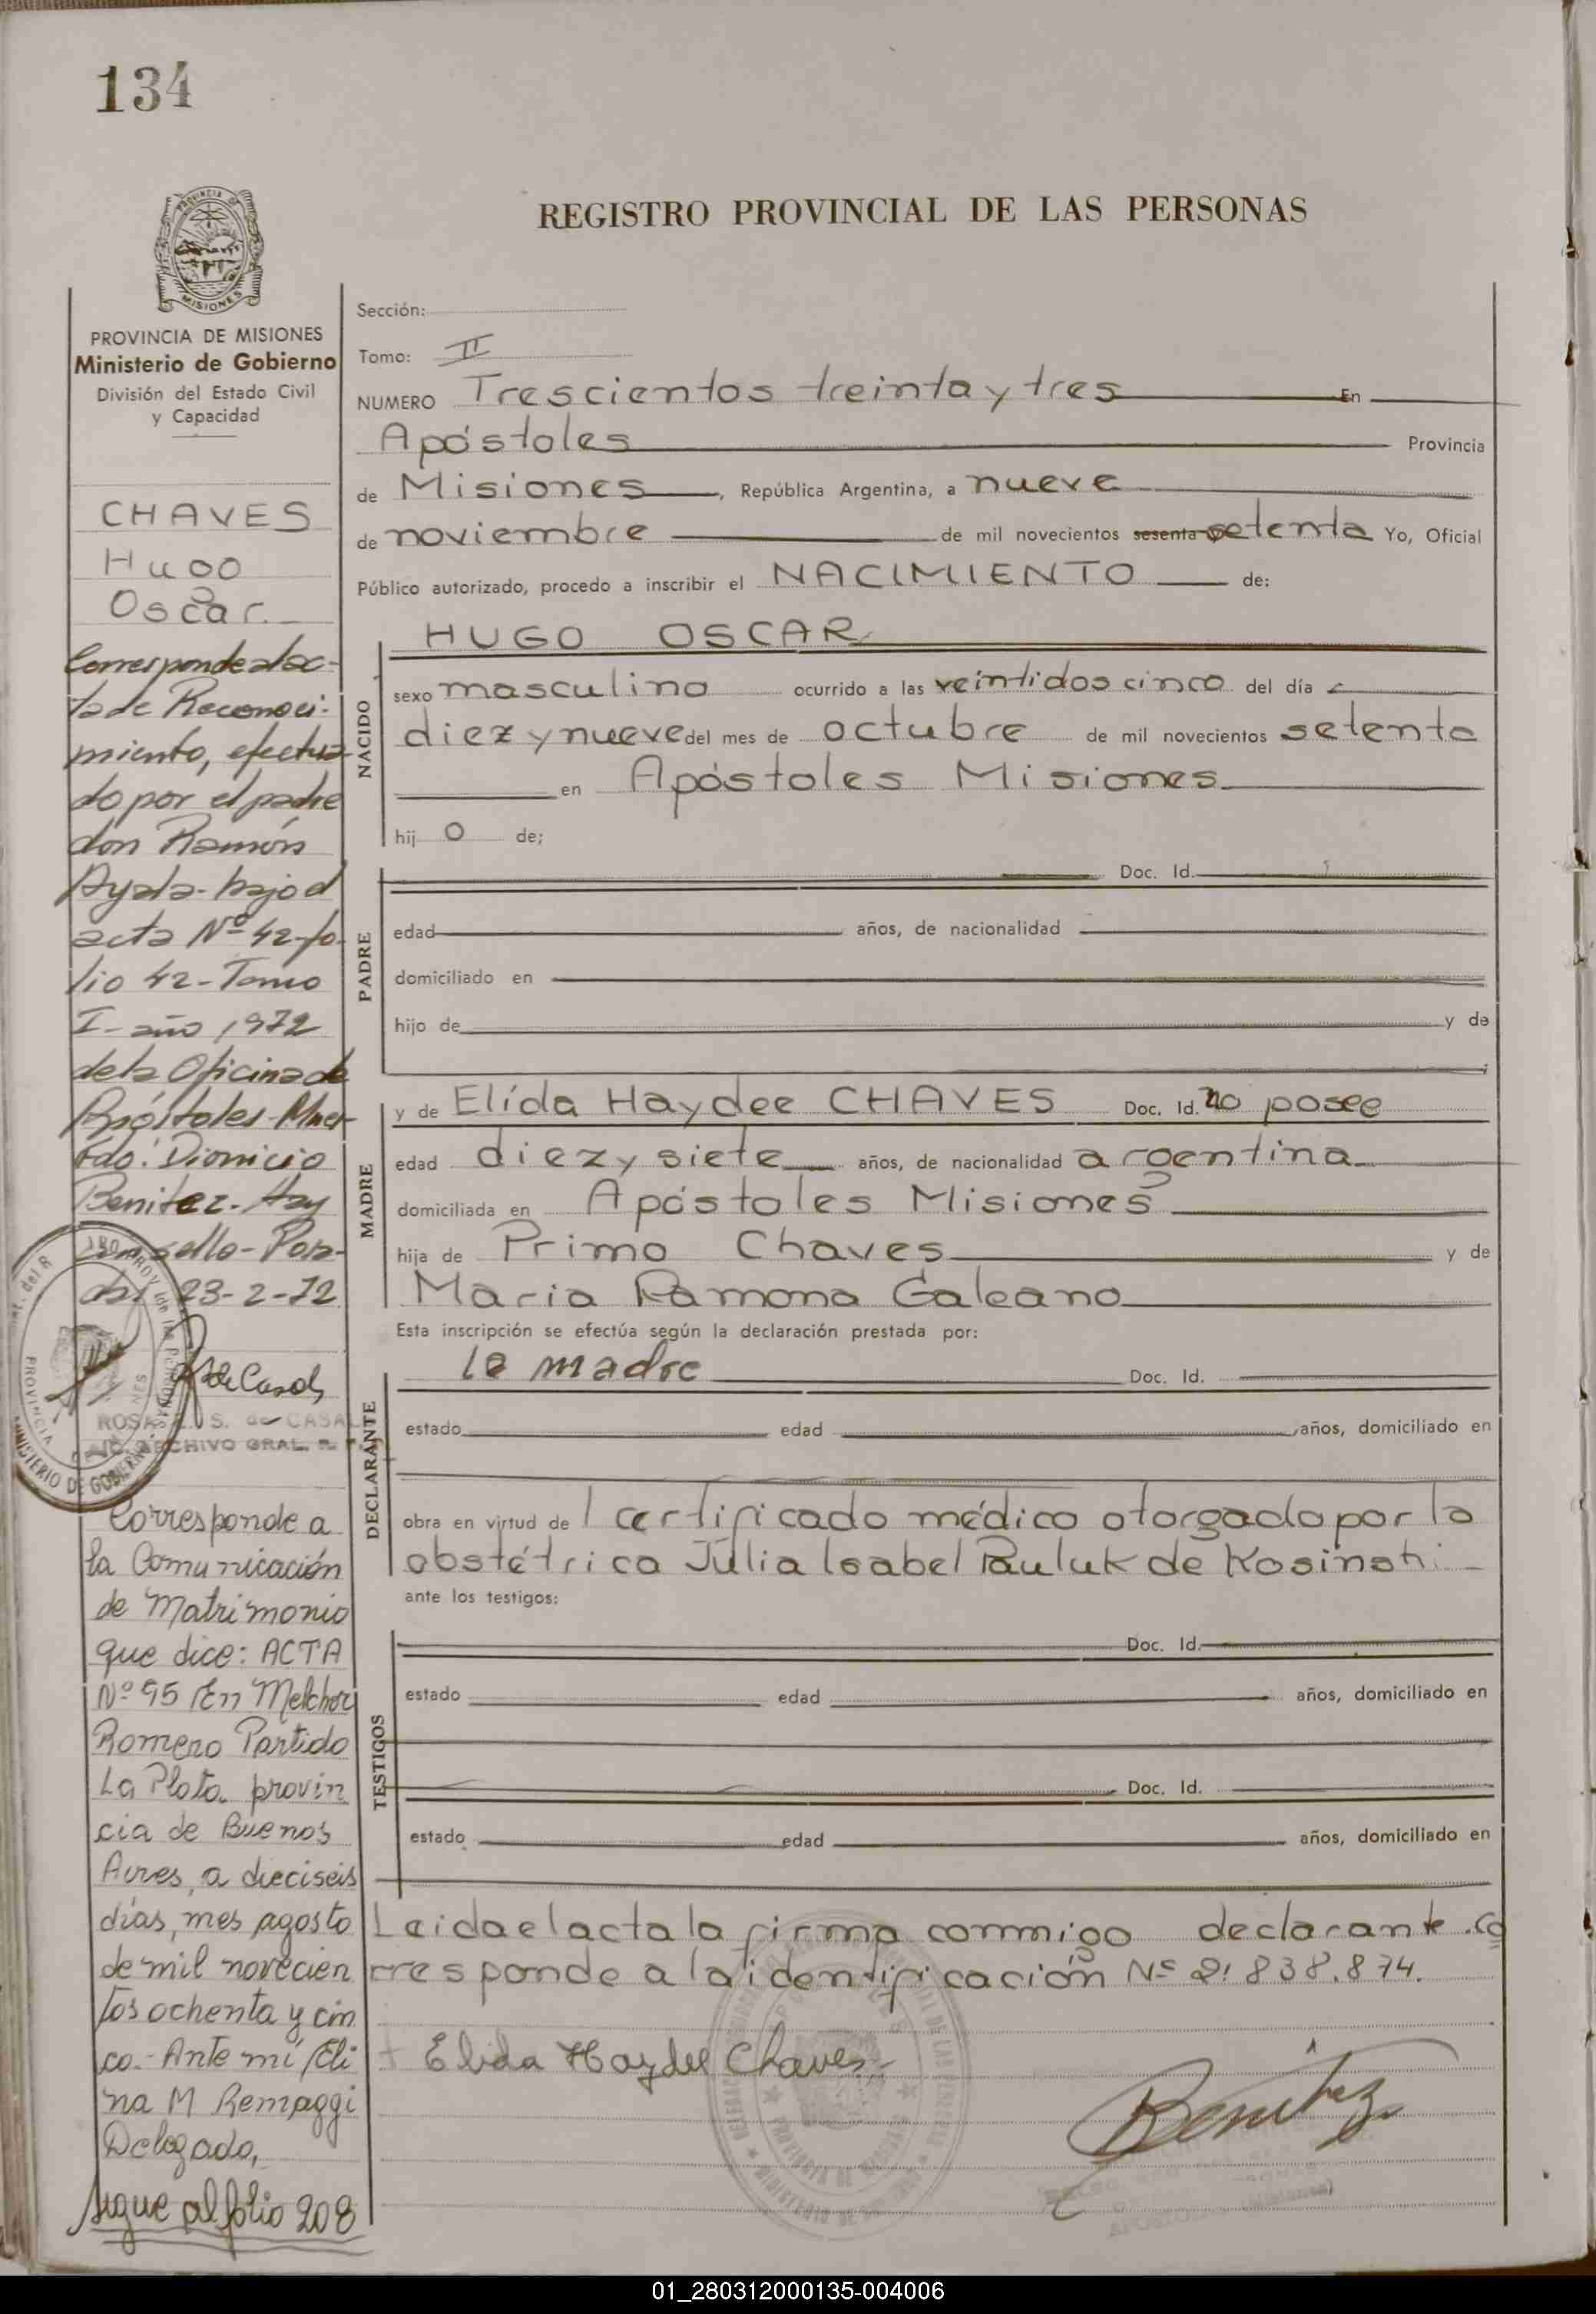 134
REGISTRO PROVINCIAL DE LAS PERSONAS
PROVINCIA DE MISIONES
Ministerio de Gobierno
División del Estado Civil
y Capacidad
CHAVES
Hugo
Oscar.
Corresponde al ac-
ta de Reconoci-
miento, efectua
do por el padre
don Ramón
Ayala-bajo el
acta Nº 42-fo-
lio 42-Tomo
I-año 1972
de la Oficina de
Apóstoles-Mnes-
Fdo: Dionicio
Benitez-Hay
un sello-Posa-
das 23-2-72
ROSA S. de CASAL
ARCHIVO GRAL.
Corresponde a
la Comunicación
de Matrimonio
que dice: ACTA
Nº 95 /En Melchor
Romero Partido
La Plata provin
cia de Buenos
Aires, a dieciseis
días, mes agosto
de mil novecien
tos ochenta y cin
co.- Ante mí /Eli
na M Remaggi
Delegado,
Sigue al folio 208
Sección:
Tomo: II
NUMERO Trescientos treinta y tres En
Apóstoles Provincia
de Misiones, República Argentina, a nueve
de noviembre de mil novecientos sesenta setenta Yo, Oficial
Público autorizado, procedo a inscribir el NACIMIENTO de:
HUGO OSCAR
NACIDO
sexo masculino ocurrido a las veintidos cinco del día
diez y nueve del mes de octubre de mil novecientos setenta
en Apóstoles Misiones
hij o de;
PADRE
Doc. Id.
edad años, de nacionalidad
domiciliado en
hijo de y de
MADRE
y de Elída Haydee CHAVES Doc. Id. no posee
edad diez y siete años, de nacionalidad argentina
domiciliada en Apóstoles Misiones
hija de Primo Chaves y de
Maria Ramona Galeano
Esta inscripción se efectúa según la declaración prestada por:
DECLARANTE
la madre Doc. Id.
estado edad años, domiciliado en
obra en virtud de l certificado médico otorgado por la
obstétrica Julia Isabel Pauluk de Kosinski
ante los testigos:
TESTIGOS
Doc. Id.
estado edad años, domiciliado en
Doc. Id.
estado edad años, domiciliado en
Leida el acta la firma conmigo declarante. co
rresponde a la identificación Nº 21.838.874.
Elida Haydee Chaves
Benitez
01_280312000135-004006